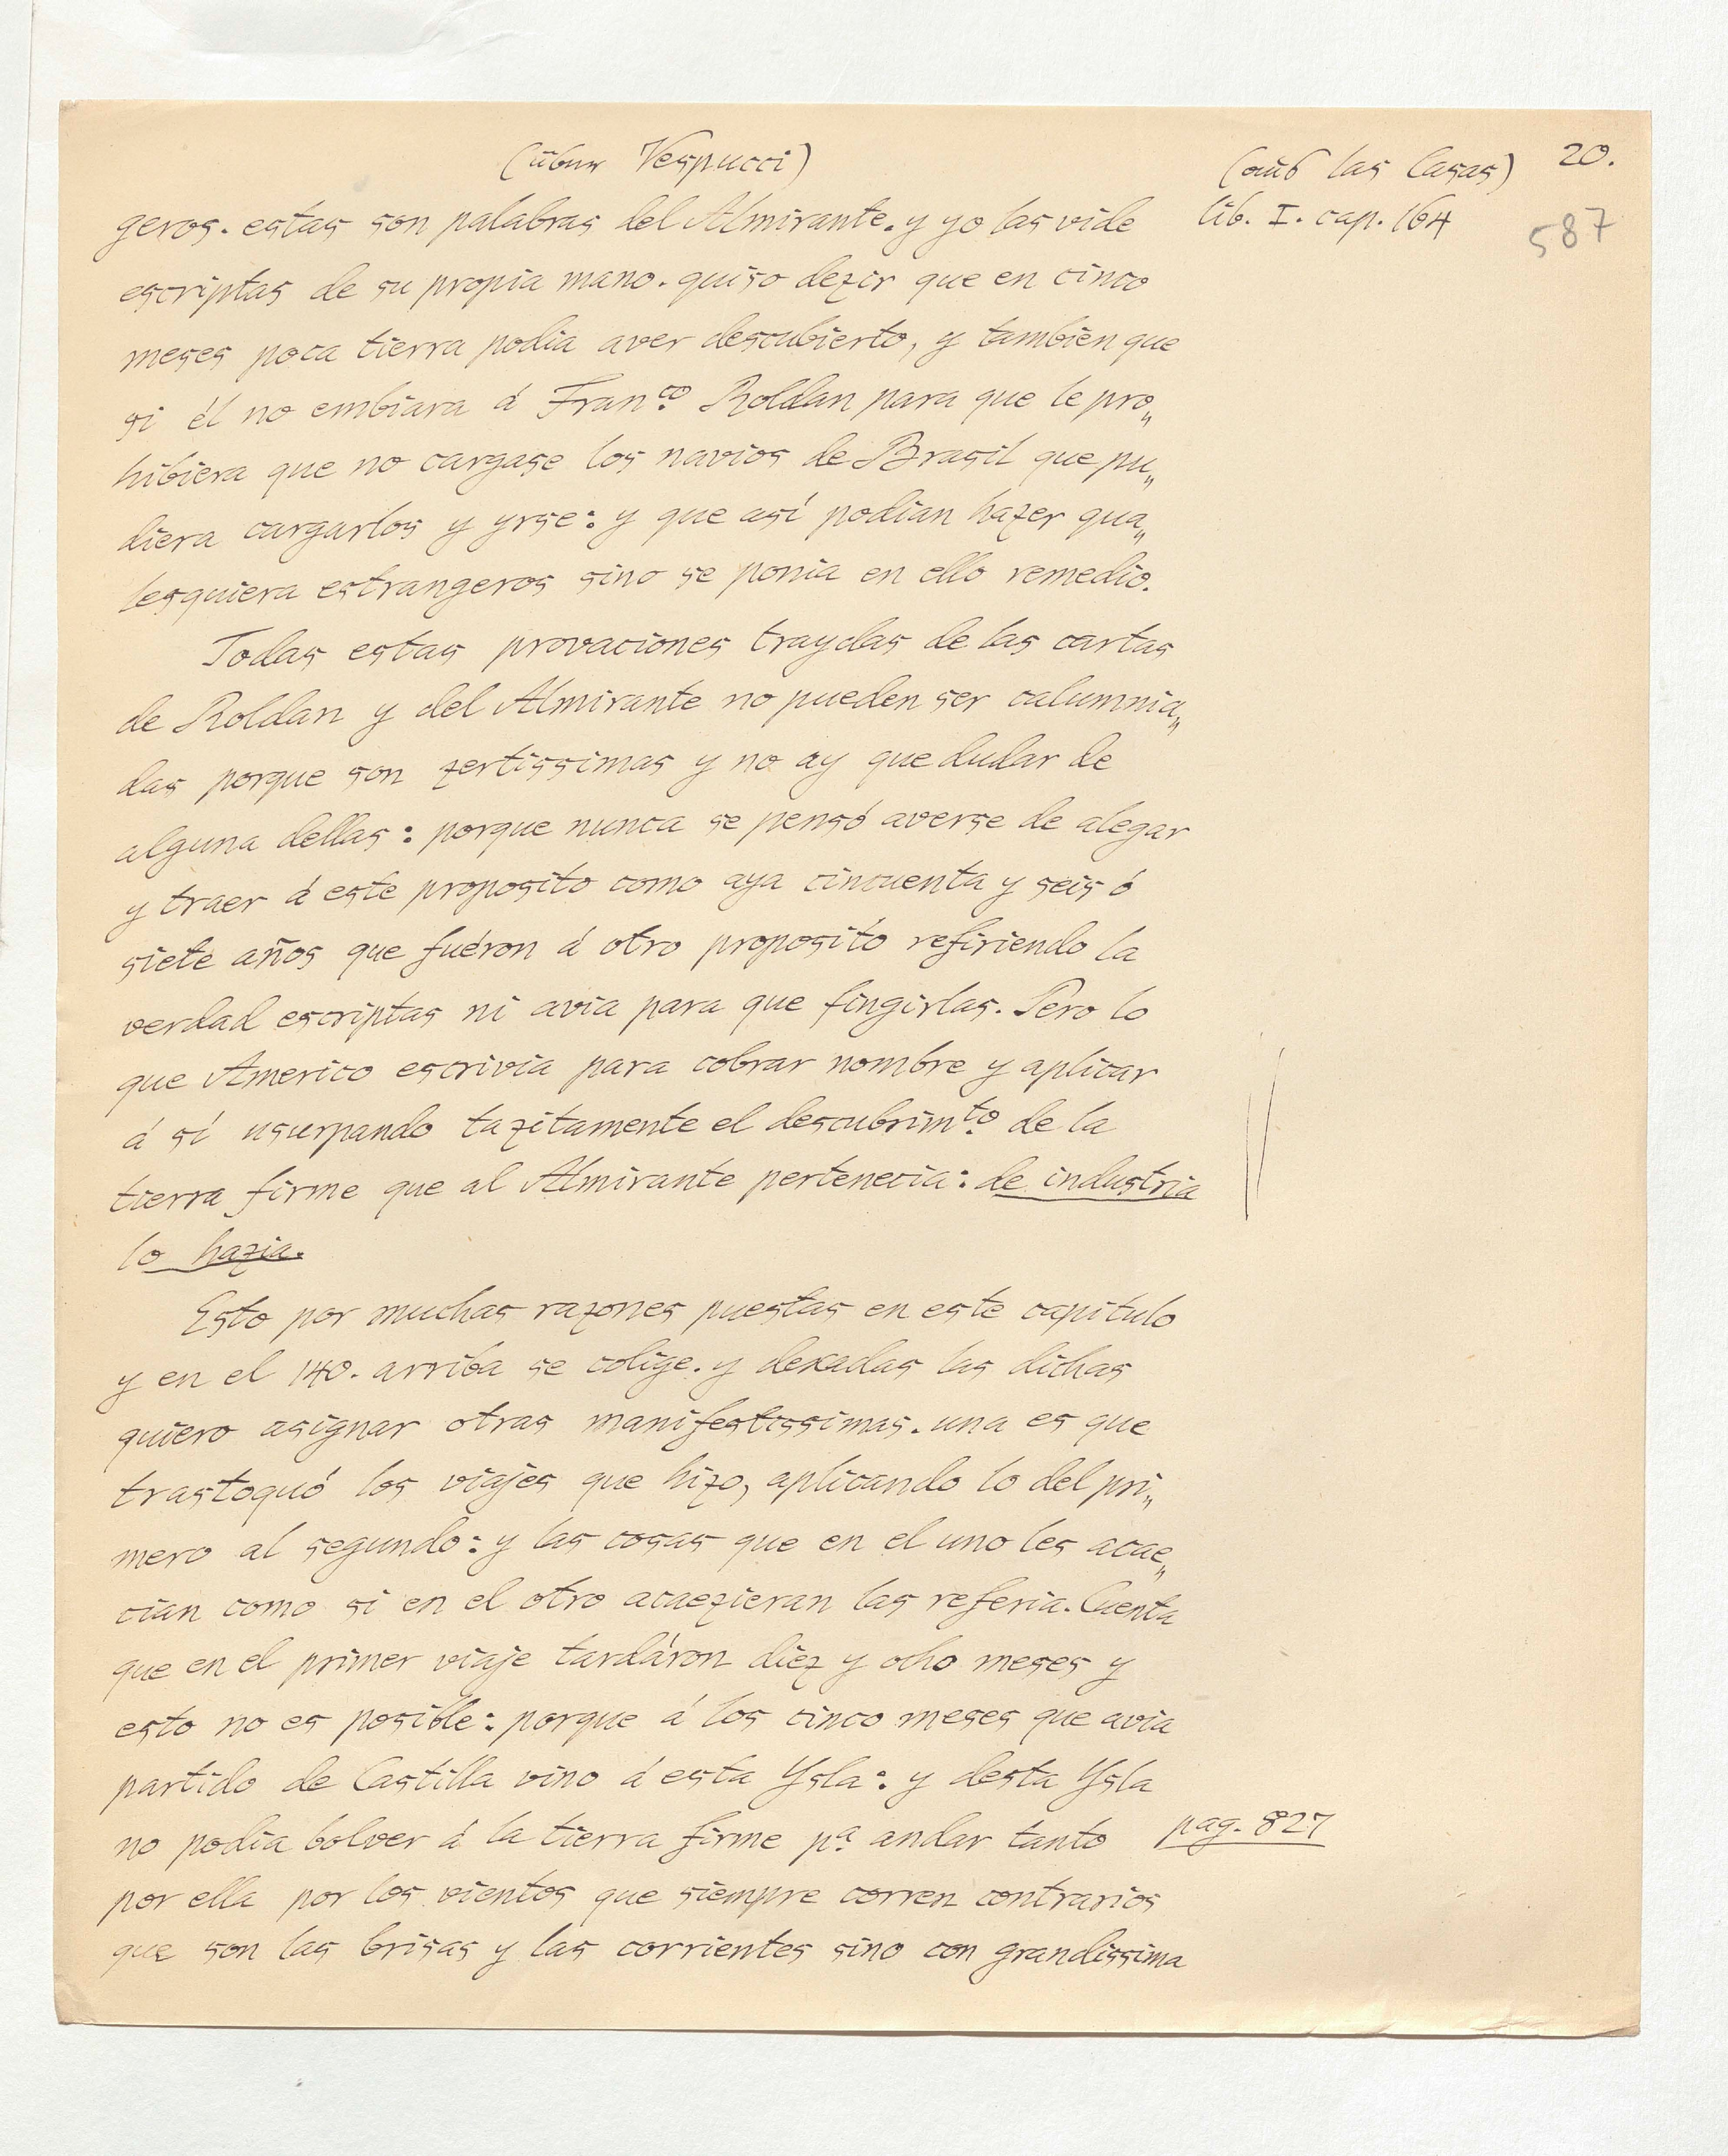 (über Vespucci)
(aus las Casas)
20.
lib. I. cap. 164
587
geros. estas son palabras del Almirante. y yo las vide
escriptas de su propia mano. quiso dezir que en cinco
meses poca tierra podia aver descubierto, y tambien que
si él no embiara á Fran.co Roldan para que le pro„
hibiera que no cargase los navios de Brasil que pu„
diera cargarlos y yrse: y que así podian hazer qua„
lesquiera estrangeros sino se ponia en ello remedio.
Todas estas provaciones traydas de las cartas
de Roldan y del Almirante no pueden ser calumnia„
das porque son zertissimas y no ay que dudar de
alguna dellas: porque nunca se pensó averse de alegar
y traer á este proposito como aya cincuenta y seis ó
siete años que fuéron á otro proposito refiriendo la
verdad escriptas ni avia para que fingirlas. Pero lo
que Americo escrivia para cobrar nombre y aplicar
á sí usurpando tazitamente el descubrim.to de la
tierra firme que al Almirante pertenecia: de industria
lo hazia.
Esto por muchas razones puestas en este capitulo
y en el 140. arriba se colige. y dexadas las dichas
quiero asignar otras manifestissimas. una es que
trastoquó los viajes que hizo, aplicando lo del pri„
mero al segundo: y las cosas que en el uno les acae„
cian como si en el otro acaezieran las referia. Cuenta
que en el primer viaje tardáron diez y ocho meses y
esto no es posible: porque á los cinco meses que avia
partido de Castilla vino á esta Ysla: y desta Ysla
no podia bolver á la tierra firme p.a andar tanto
pag. 827
por ella por los vientos que siempre corren contrarios
que son las brisas y las corrientes sino con grandissima